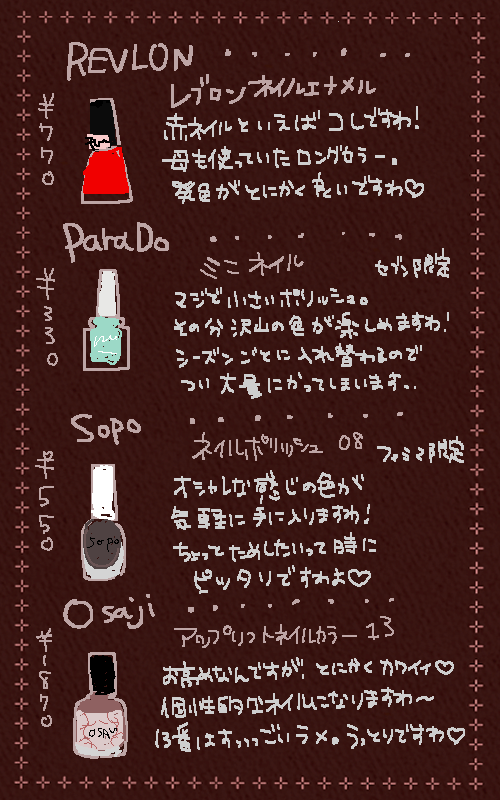 REVLON
¥770
レブロン ネイルエナメル
赤ネイルといえばコレですわ!
母も使っていたロングセラー。
発色がとにかく良いですわ♡
ParaDo
¥330
ミニ ネイル
セブン限定
マジで小さいポリッシュ。
その分沢山の色が楽しめますわ!
シーズンごとに入れ替わるので
つい大量にかってしまいます..
Sopo
¥550
ネイルポリッシュ 08
ファミマ限定
オシャレな感じの色が
気軽に手に入りますわ!
ちょっとためしたいって時に
ピッタリですわよ♡
sopo
Osaji
¥1870
アップリフトネイルカラー 13
お高めなんですが、とにかくカワイイ♡
個性的なネイルになりますわ〜
13番はすっっっごいラメ。うっとりですわ♡
OSAJI